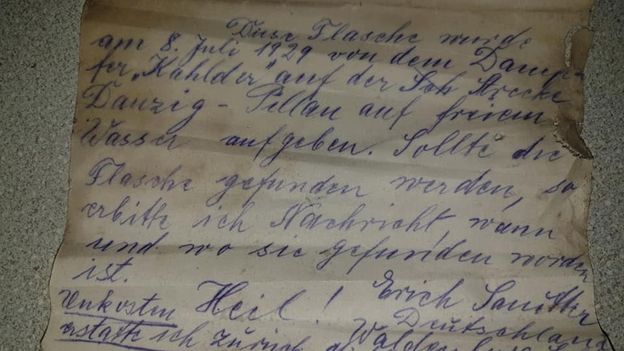 Diese Flasche wurde
am 8. Juli 1929 von dem Damp-
fer „Kahlder“ auf der Strecke
Danzig - Pillau auf freiem
Wasser aufgeben. Sollte die
Flasche gefunden werden, so
erbitte ich Nachricht, wann
und wo sie gefunden worden
ist.
Heil! Erich
Unkosten Deutschland
erstatte ich zurück